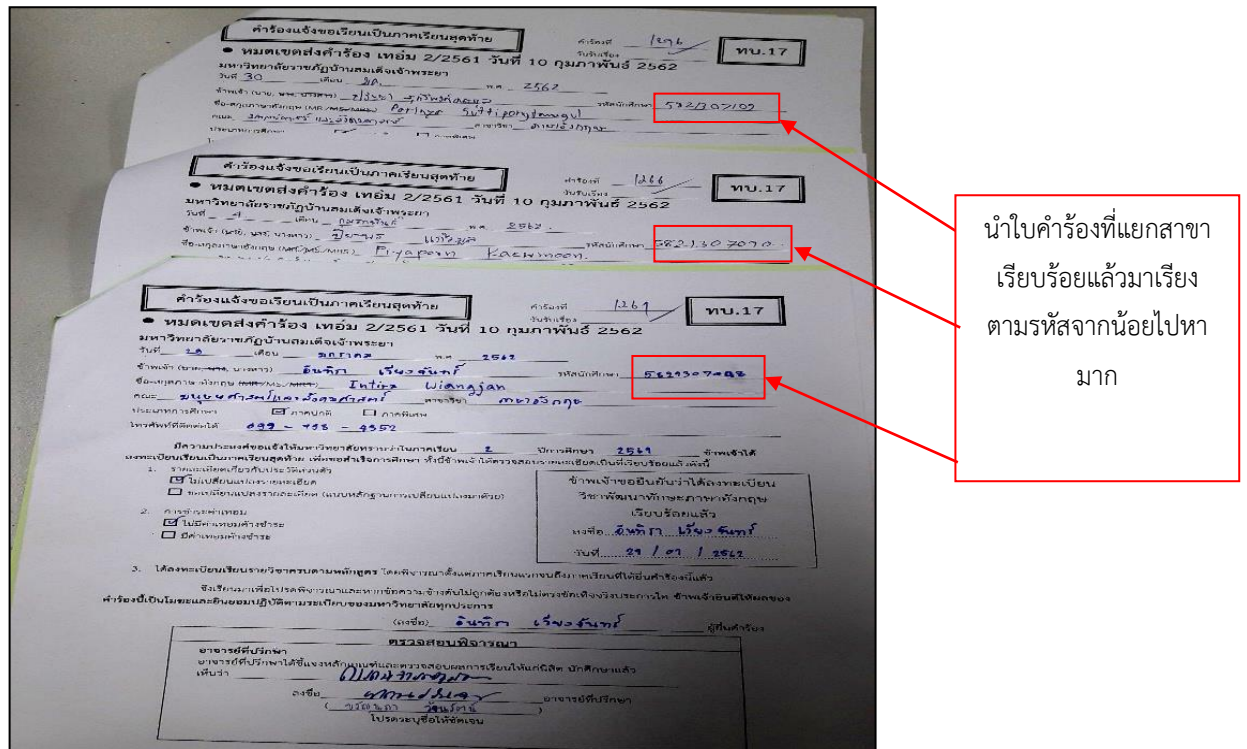 คำร้องแจ้งขอเรียนเป็นภาคเรียนสุดท้าย
คำร้องที่ 1296
วันรับเรื่อง
ทบ.17
• หมดเขตส่งคำร้อง เทอม 2/2561 วันที่ 10 กุมภาพันธ์ 2562
มหาวิทยาลัยราชภัฏบ้านสมเด็จเจ้าพระยา
วันที่ 30 เดือน พ.ศ. 2562
ข้าพเจ้า (นาย, นส, นางสาว) รหัสนักศึกษา
ชื่อ-สกุลภาษาอังกฤษ (MR./MS./MRS.)
คณะ สาขาวิชา ภาษาอังกฤษ
ประเภทการศึกษา
คำร้องแจ้งขอเรียนเป็นภาคเรียนสุดท้าย
คำร้องที่ 1266
วันรับเรื่อง
ทบ.17
• หมดเขตส่งคำร้อง เทอม 2/2561 วันที่ 10 กุมภาพันธ์ 2562
มหาวิทยาลัยราชภัฏบ้านสมเด็จเจ้าพระยา
วันที่ 4 เดือน กุมภาพันธ์ พ.ศ. 2562
ข้าพเจ้า ปิยะพร แก้วมูล รหัสนักศึกษา 5821307070
ชื่อ-สกุลภาษาอังกฤษ (MR./MS./MRS.) Piyaporn Kaewmoon.
คำร้องแจ้งขอเรียนเป็นภาคเรียนสุดท้าย
คำร้องที่ 1269
วันรับเรื่อง
ทบ.17
• หมดเขตส่งคำร้อง เทอม 2/2561 วันที่ 10 กุมภาพันธ์ 2562
มหาวิทยาลัยราชภัฏบ้านสมเด็จเจ้าพระยา
วันที่ เดือน มกราคม พ.ศ. 2562
ข้าพเจ้า อินทิรา เวียงจันทร์ รหัสนักศึกษา
ชื่อ-สกุลภาษาอังกฤษ (MR./MS./MRS.) Intira Wiangjan
คณะ มนุษยศาสตร์และสังคมศาสตร์ สาขาวิชา ภาษาอังกฤษ
ประเภทการศึกษา ภาคปกติ ภาคพิเศษ
โทรศัพท์ที่ติดต่อได้
มีความประสงค์ขอแจ้งให้มหาวิทยาลัยทราบว่าในภาคเรียน 2 ปีการศึกษา 2561 ข้าพเจ้าได้
ลงทะเบียนเรียนเป็นภาคเรียนสุดท้าย เพื่อขอสำเร็จการศึกษา ทั้งนี้ข้าพเจ้าได้ตรวจสอบรายละเอียดเป็นที่เรียบร้อยแล้วดังนี้
1. รายละเอียดเกี่ยวกับประวัติส่วนตัว
ไม่เปลี่ยนแปลงรายละเอียด
ขอเปลี่ยนแปลงรายละเอียด (แนบหลักฐานการเปลี่ยนแปลงมาด้วย)
2. การชำระค่าเทอม
ไม่มีค่าเทอมค้างชำระ
มีค่าเทอมค้างชำระ
ข้าพเจ้าขอยืนยันว่าได้ลงทะเบียน
วิชาพัฒนาทักษะภาษาอังกฤษ
เรียบร้อยแล้ว
ลงชื่อ อินทิรา เวียงจันทร์
วันที่ 29 / 01 / 2562
3. ได้ลงทะเบียนเรียนรายวิชาครบตามหลักสูตร โดยพิจารณาตั้งแต่ภาคเรียนแรกจนถึงภาคเรียนที่ได้ยื่นคำร้องนี้แล้ว
จึงเรียนมาเพื่อโปรดพิจารณาและหากข้อความข้างต้นไม่ถูกต้องหรือไม่ตรงข้อเท็จจริงประการใด ข้าพเจ้ายินดีให้ผลของ
คำร้องนี้เป็นโมฆะและยินยอมปฏิบัติตามระเบียบของมหาวิทยาลัยทุกประการ
(ลงชื่อ) อินทิรา เวียงจันทร์ ผู้ยื่นคำร้อง
ตรวจสอบพิจารณา
อาจารย์ที่ปรึกษา
อาจารย์ที่ปรึกษาได้ชี้แจงหลักเกณฑ์และตรวจสอบผลการเรียนให้แก่นิสิต นักศึกษาแล้ว
เห็นว่า
ลงชื่อ อาจารย์ที่ปรึกษา
โปรดระบุชื่อให้ชัดเจน
นำใบคำร้องที่แยกสาขา
เรียบร้อยแล้วมาเรียง
ตามรหัสจากน้อยไปหา
มาก